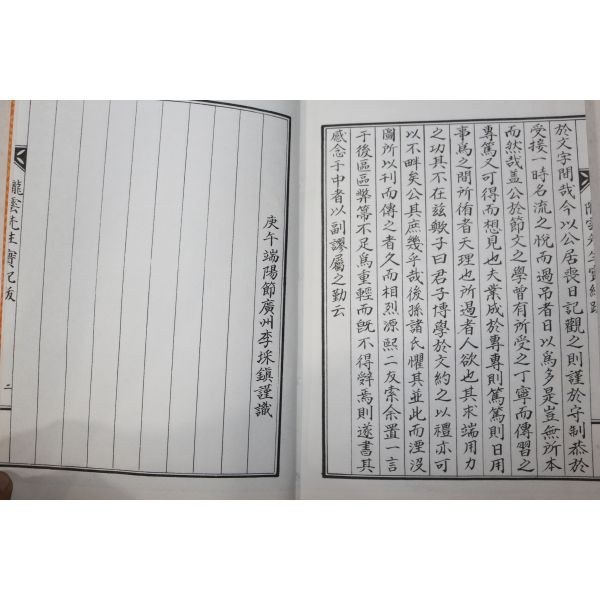 於文字間哉今以公居喪日記觀之則謹於守制恭於
受接一時名流之悅而過吊者日以爲多是豈無所本
而然哉盖公於節文之學曾有所受之丁寧而傳習之
專篤又可得而想見也夫業成於專專則篤篤則日用
事爲之間所侑者天理也所過者人欲也其求端用力
之功其不在玆歟子曰君子博學於文約之以禮亦可
以不畔矣公其庶幾乎哉後孫諸氏懼其並此而湮沒
圖所以刊而傳之者久而相烈源熙二友索余置一言
于後區區弊箒不足爲重輕而旣不得辤焉則遂書其
感念于中者以副謬屬之勤云
庚午端陽節廣州李埰鎭謹識
龍雲先生實紀跋
二